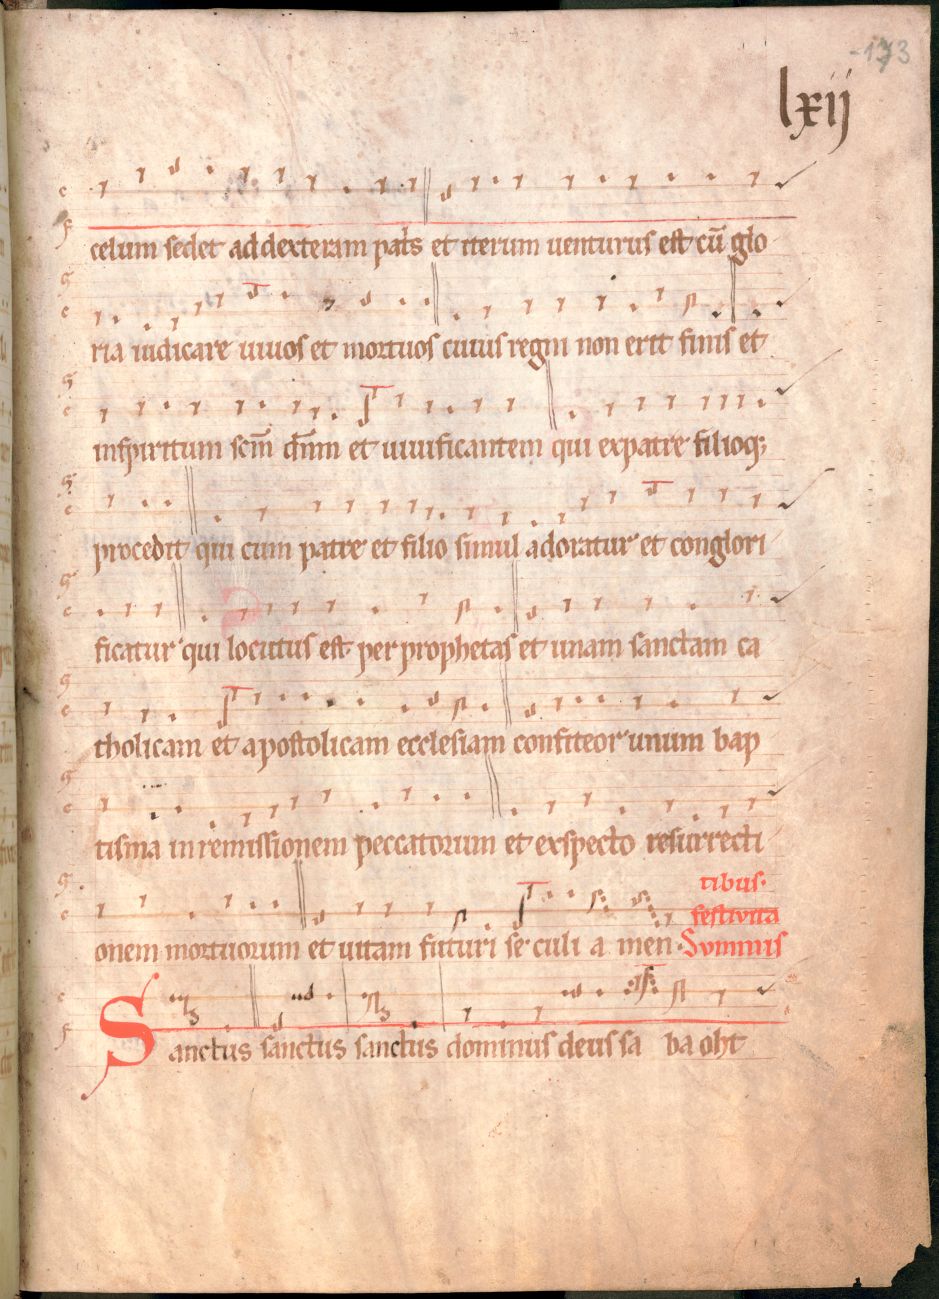 -173
lxij
celum sedet ad dexteram pat̄s et iterum uenturus est cū glo
ria iudicare uiuos et mortuos cuius regni non erit finis et
in spiritum scm̄ dn̄m et uiuificantem qui ex patre filioq;
procedit qui cum patre et filio simul adoratur et conglori
ficatur qui locutus est per prophetas et unam sanctam ca
tholicam et apostolicam ecclesiam confiteor unum bap
tisma in remissionem peccatorum et exspecto resurrecti
tibus.
festiuita
onem mortuorum et uitam futuri se culi a men. Svmmis
Sanctus sanctus sanctus dominus deus sa ba oht